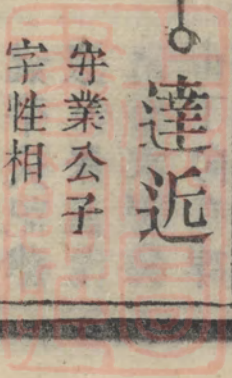 達近
守業公子
字性相